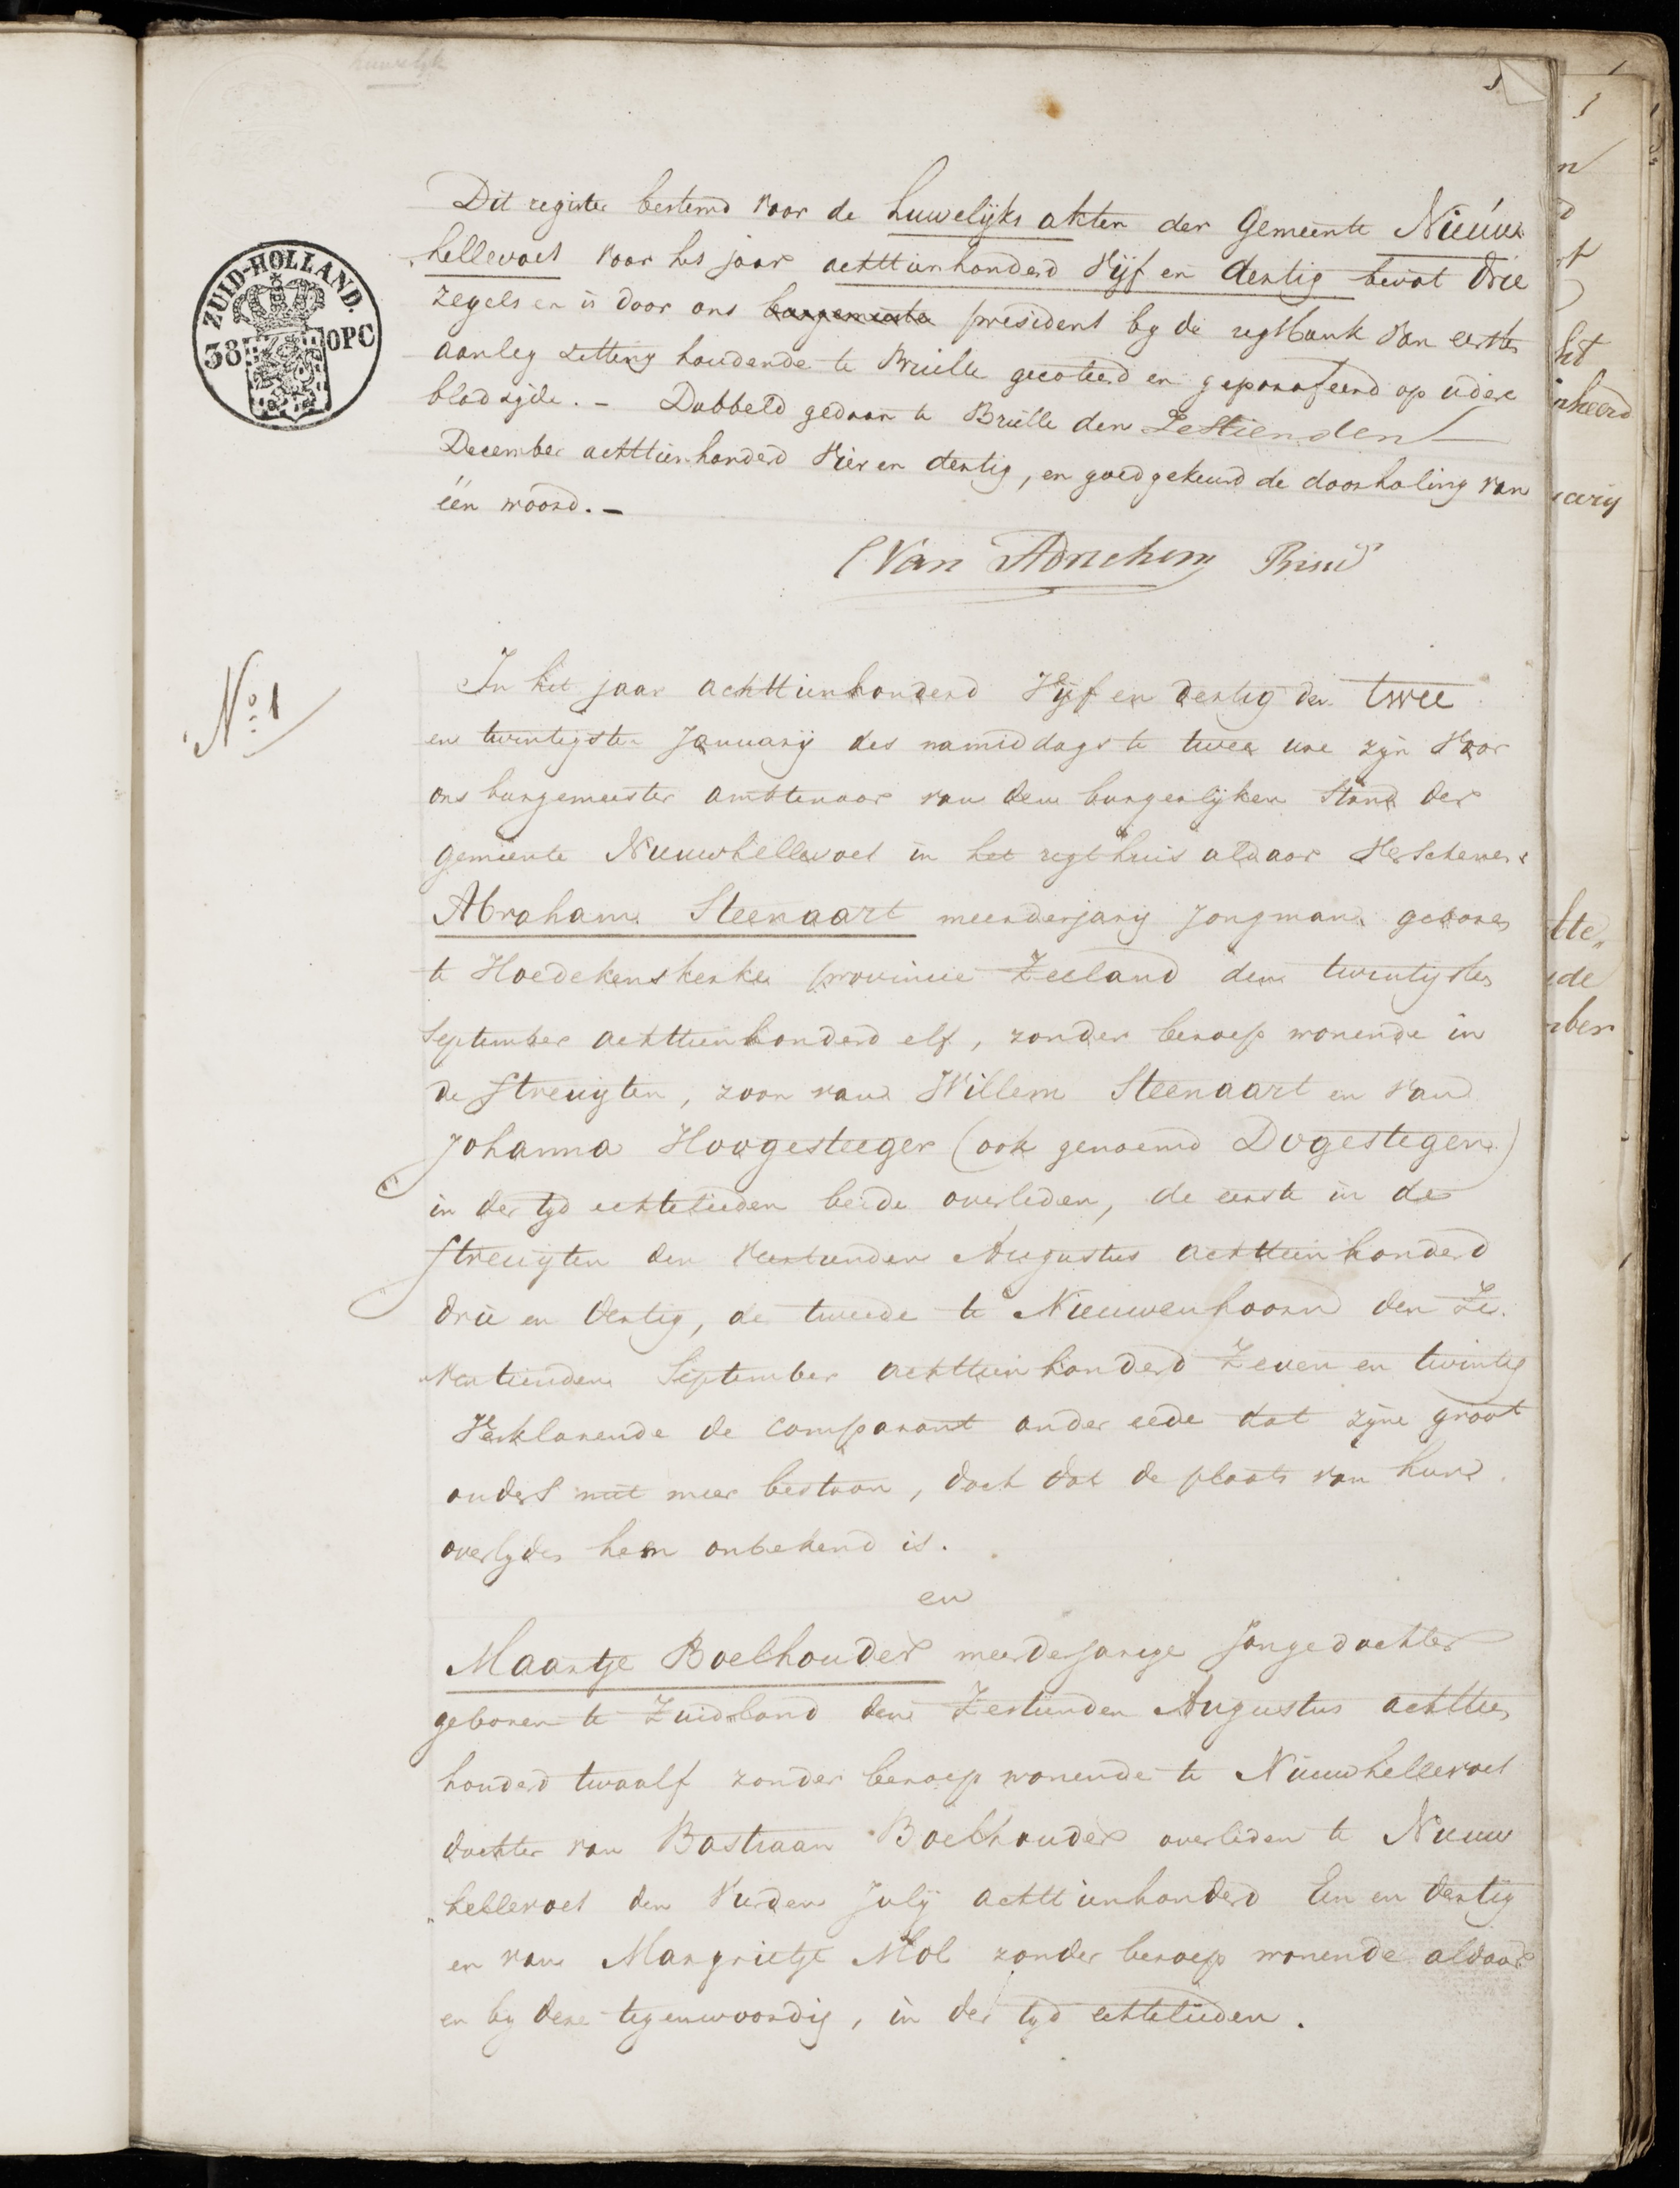 huwelijk
1
Dit register bestemd voor de huwelijks akten der Gemeente Nieuw
hellevoet voor het jaar achttienhonderd Vijf en dertig bevat drie
zegels en is door ons burgemeester president by de regtbank van eersten
aanleg zitting houdende te Brielle gecoteerd en geparafeerd op iedere
bladzijde. – Dubbeld gedaan te Brielle den Zestienden
December achttienhonderd Vier en dertig, en goedgekeurd de doorhaling van
één woord. –
ZUID-HOLLAND.
38 OPC
Van Presid
No 1
In het jaar achttienhonderd Vijf en dertig den twee
en twintigsten January des namiddags te twee ure zyn Voor
ons burgemeester ambtenaar van den burgerlijken Stand der
gemeente Nieuwhellevoet in het regthuis aldaar Verschenen
Abraham Steenaart meerderjarig Jongman geboren
te Hoedekenskerke provincie Zeeland den twintigsten
September achttienhonderd elf, zonder beroep wonende in
de Struyten, zoon van Willem Steenaart en van
Johanna Hoogesteeger (ook genoemd Dogestegen)
in der tyd echtelieden beide overleden, de eerste in de
Struyten den Veertienden Augustus achttienhonderd
drie en dertig, de tweede te Nieuwenhoorn den Ze-
ventienden September achttienhonderd Zeven en twintig
Verklarende de comparant onder eede dat zijne groot
ouders niet meer bestaan, doch dat de plaats van hun
overlyden hem onbekend is.
en
Maartje Boelhouder meerderjarige Jongedochter
geboren te Zuidland den Zestienden Augustus achttien
honderd twaalf zonder beroep wonende te Nieuwhellevoet
dochter van Bastiaan Boelhouder overleden te Nieuw
hellevoet den Vierden July achttienhonderd Een en dertig
en van Margrietje Mol zonder beroep wonende aldaar
en by deze tegenwoordig, in der tyd echtelieden.